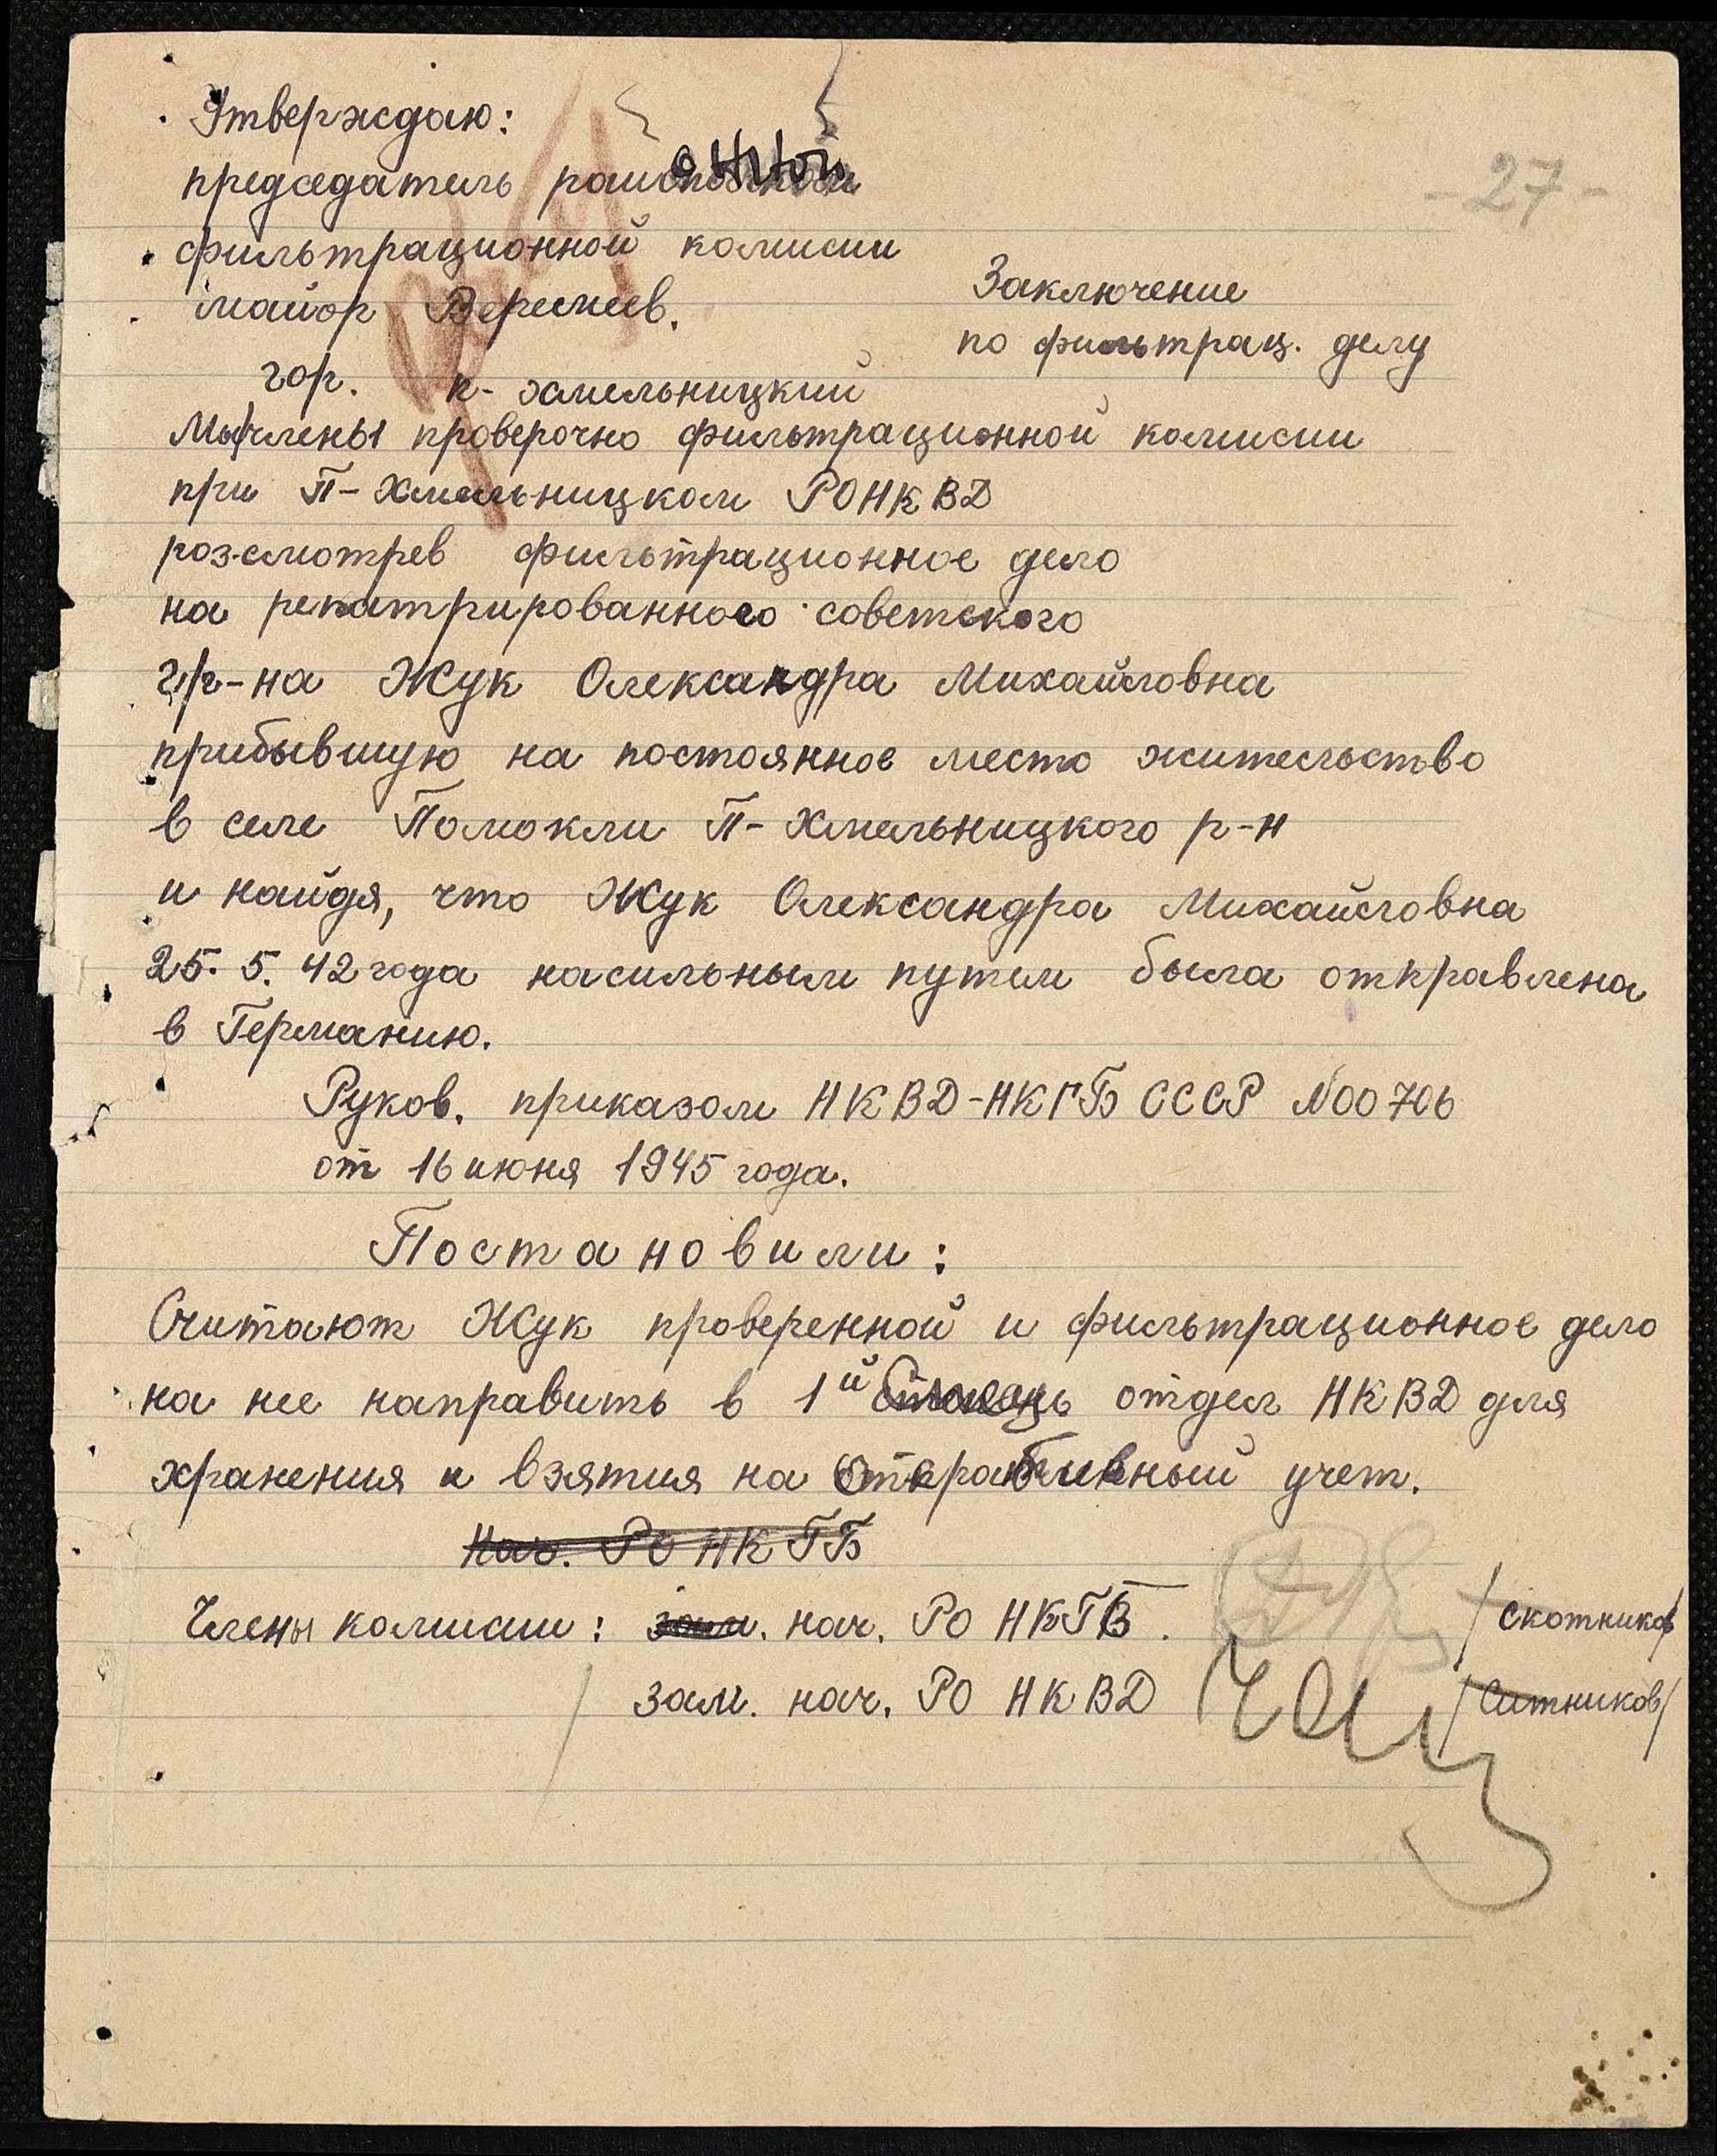 Утверждаю:
председатель районной
фильтрационной комисии
майор
- 27 -
Заключение
по фильтрац. делу
гор. п- хмельницкий
Мы члены проверочно фильтрационной комисии
при П- Хмельницком РОНКВД
розсмотрев фильтрационное дело
на репатрированного советского
гр-на Жук Олександра Михайловна
прибывшую на постоянное место жительство
в селе Помокли П- Хмельницкого р-н
и найдя, что Жук Олександра Михайловна
25. 5. 42 года насильным путем была отправлена
в Германию.
Руков. приказом НКВД-НКГБ СССР №00706
от 16 июня 1945 года.
Постановили:
Считают Жук проверенной и фильтрационное дело
на нее направить в 1й отдел НКВД для
хранения и взятия на учет.
Нач. РО НКГБ
Члены комисии: зам. нач. РО НКГБ. /Скотников/
зам. нач. РО НКВД /Ситников/